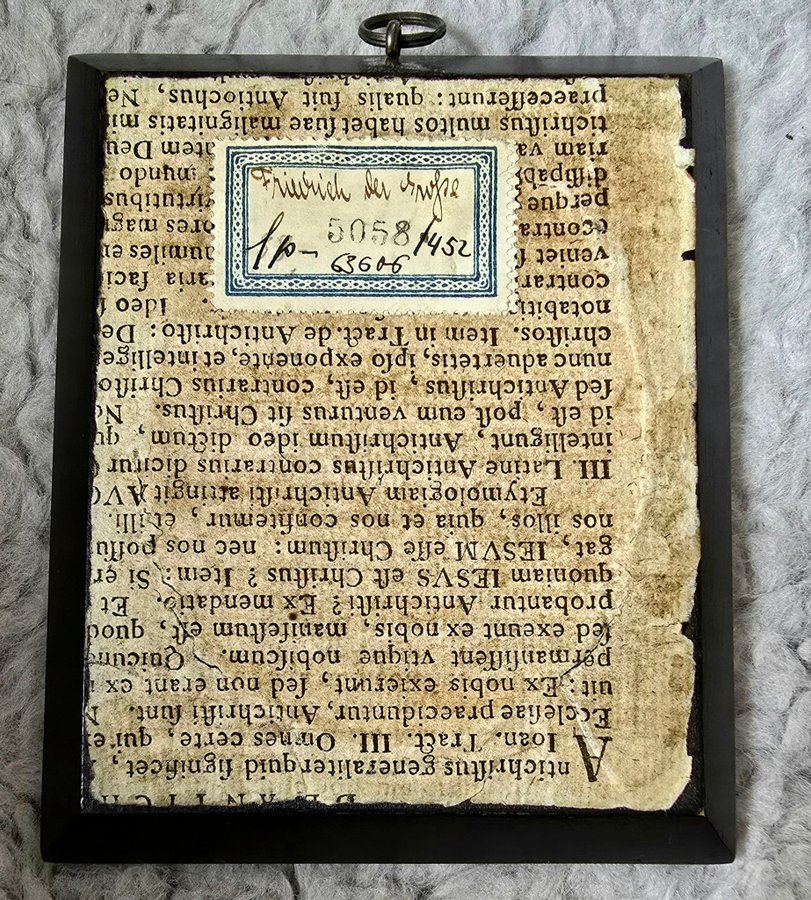 Friedrich der Große
5058
fp— /1452
63606
DE ANTICH
Antichriſtus generaliter quid ſignificet,
Ioan. Tract. III. Omnes certe, qui ex
Eccleſiae praeciduntur, Antichriſti ſunt. N
uit: Ex nobis exierunt, ſed non erant ex n
permanſiſſent vtique nobiſcum. Quicun
ſed exeunt ex nobis, manifeſtum eſt, quod
probantur Antichriſti? Ex mendatio. Et
quoniam IESVS eſt Chriſtus? Item: Si er
gat, IESVM eſſe Chriſtum: nec nos poſſu
nos illos, quia et nos confitemur, et illi.
Etymologiam Antichriſti attingit AVG
III. Latine Antichriſtus contrarius dicitur C
intelligunt, Antichriſtum ideo dictum, qu
id eſt, poſt cum venturus ſit Chriſtus. No
ſed Antichriſtus, id eſt, contrarius Chriſto
nunc aduertetis, ipſo exponente, et intellige
chriſtos. Item in Tract. de Antichriſto: De
notabiti . Ideo
contrar aria faci
veniet ſ umiles er
contra ores magi
perque virtutibus
diſſipabi mundo
riam va tem Deu
tichriſtus multos habet ſuae malignitatis min
praeceſſerunt: qualis fuit Antiochus, Ne